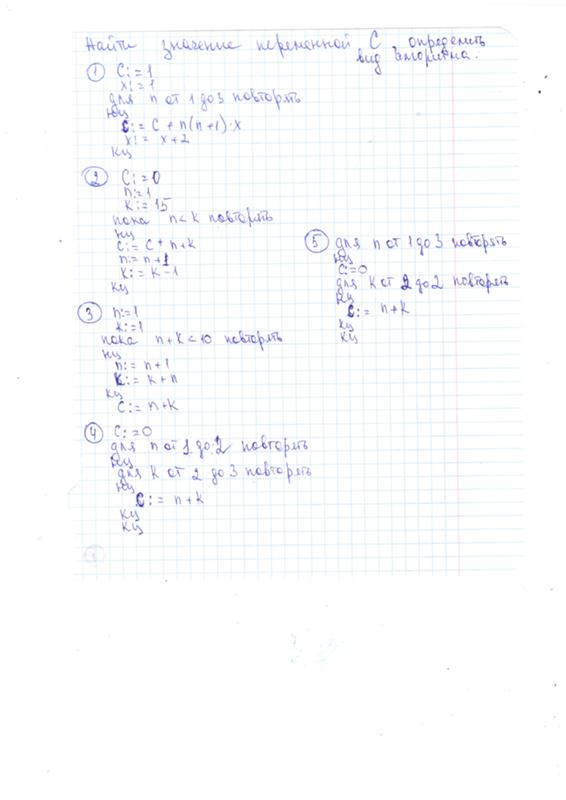 Найти значение переменной С определить
вид алгоритма.
1 C:=1
x:=1
для n от 1 до 3 повторять
нц
C:= C + n(n+1)·x
x:= x+2
кц
2 C:=0
n:=1
k:=15
пока n<k повторять
нц
C:= C + n+k
n:= n+1
k:= k-1
кц
3 n:=1
k:=1
пока n+k<10 повторять
нц
n:= n+1
k:= k+n
кц
C:= n+k
4 C:=0
для n от 1 до 2 повторять
нц
для k от 2 до 3 повторять
нц
C:= n+k
кц
кц
5 для n от 1 до 3 повторять
нц
C:=0
для k от 2 до 2 повторять
нц
C:= n+k
кц
кц